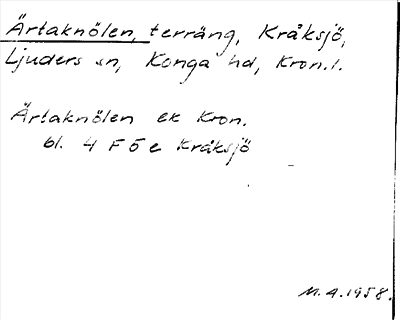 Ärtaknölen, terräng, Kråksjö,
Ljuders sn, Konga hd, Kron.l.
Ärtaknölen ek Kron.
bl. 4 F 5 e Kråksjö
M.A.1958.